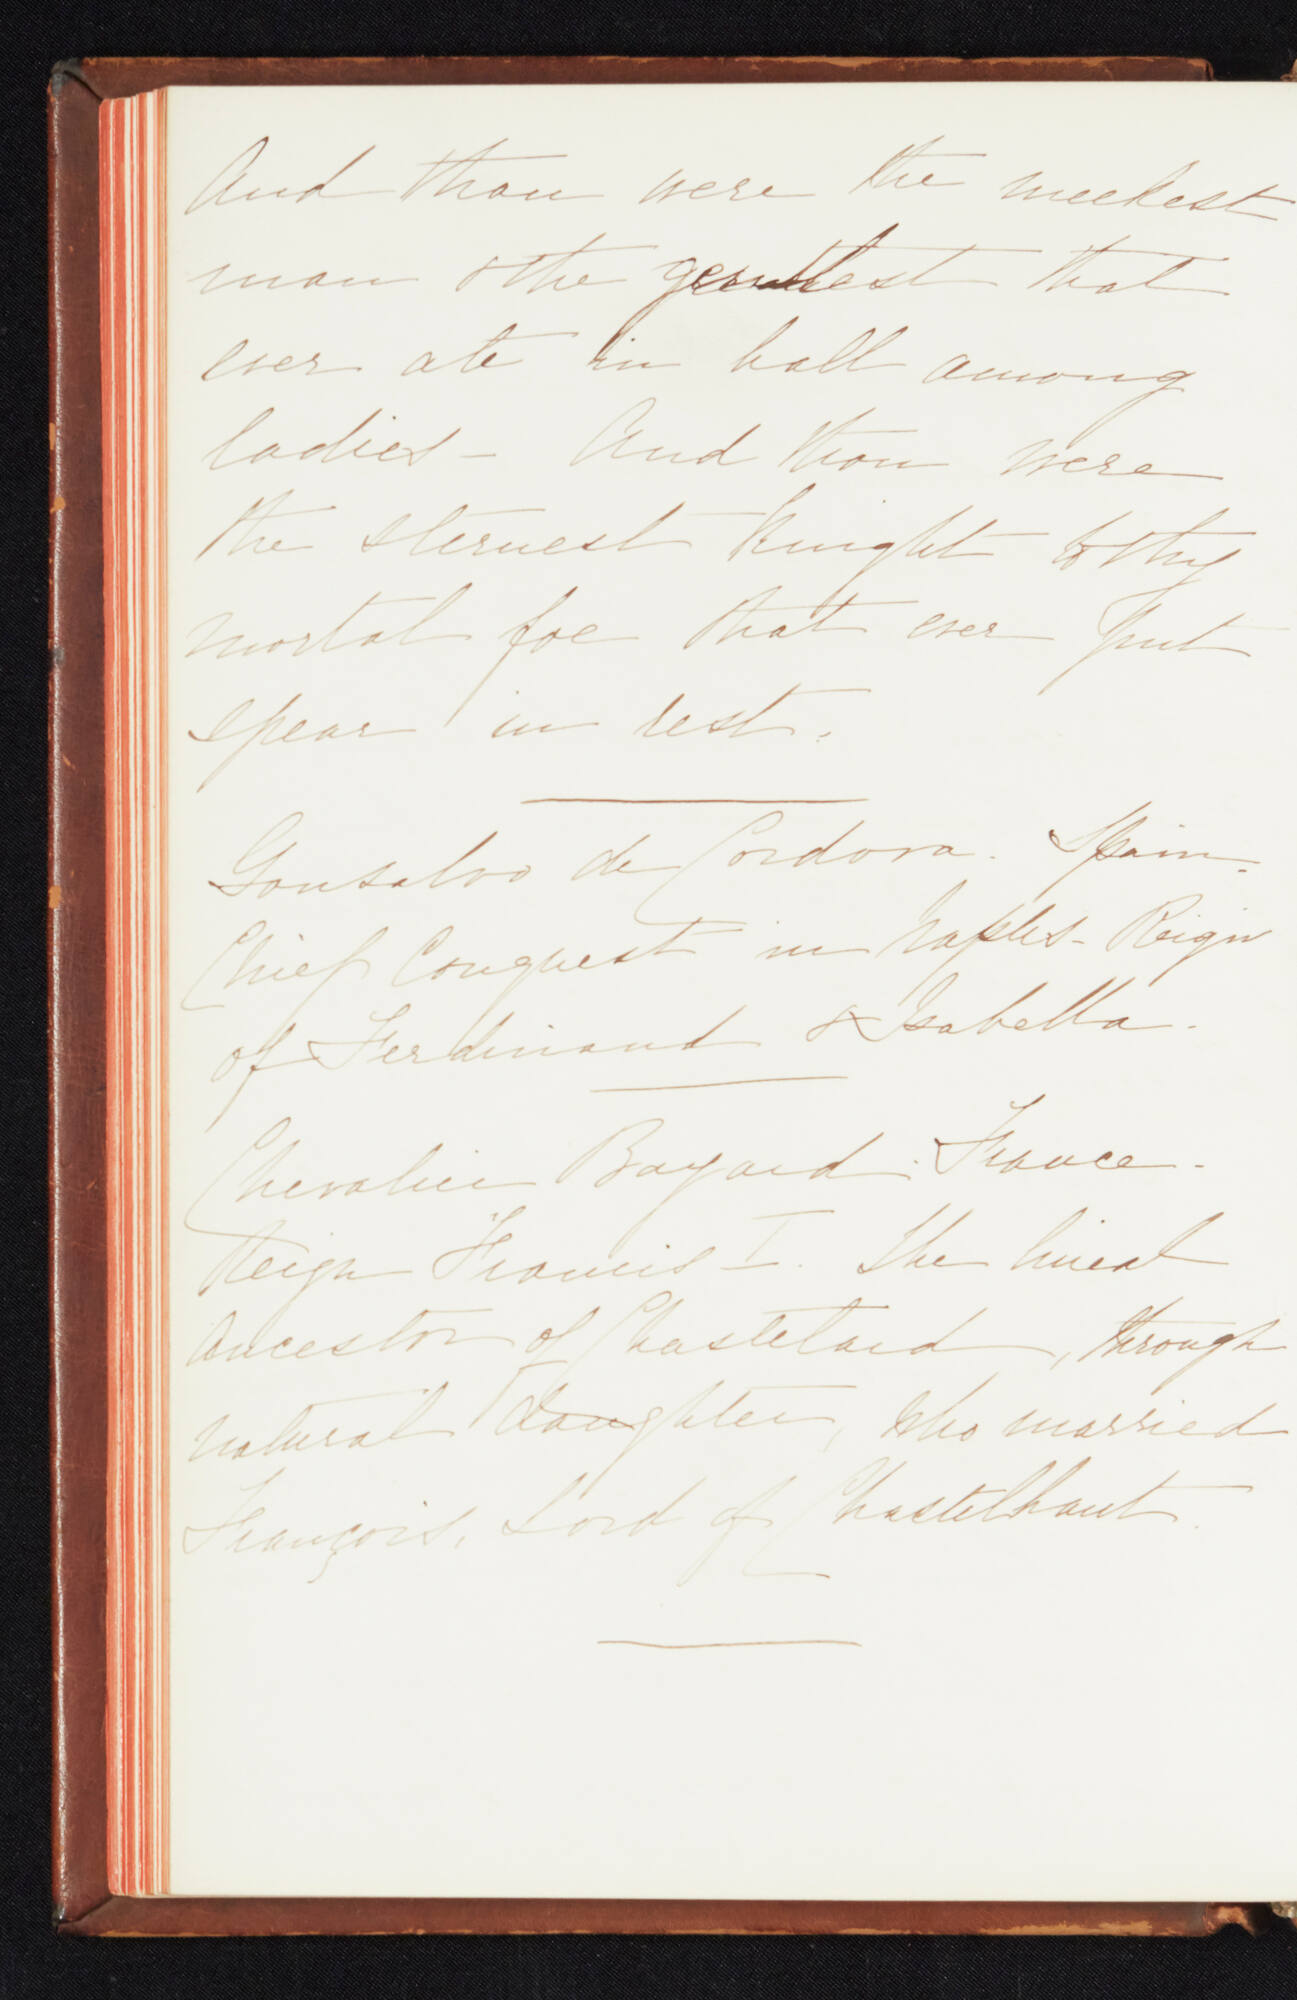 And thou were the meekest
man & the gentlest that
ever ate in hall among
ladies - And thou were
the sternest knight to thy
mortal foe that ever put
spear in rest.
Gonsalvo de Cordova. Spain.
Chief Conquest in Naples - Reign
of Ferdinand & Isabella.
Chevalier Bayard. France.
Reign Francis I. The lineal
Ancestor of Chastelard, through
natural daughter, who married
François, Lord of Chastelhaut.